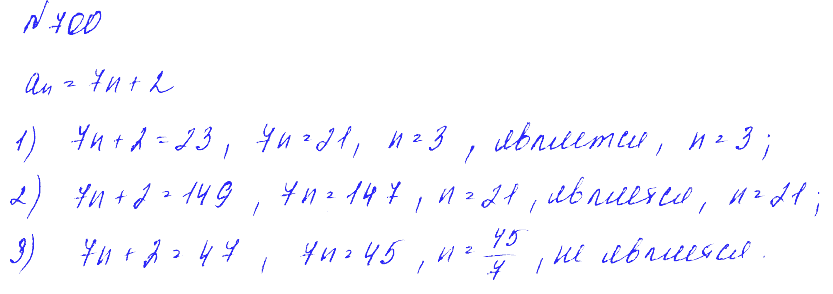 №700
aₙ = 7n + 2
1) 7n + 2 = 23, 7n = 21, n = 3, является, n = 3;
2) 7n + 2 = 149, 7n = 147, n = 21, является, n = 21;
3) 7n + 2 = 47, 7n = 45, n = 45/7, не является.